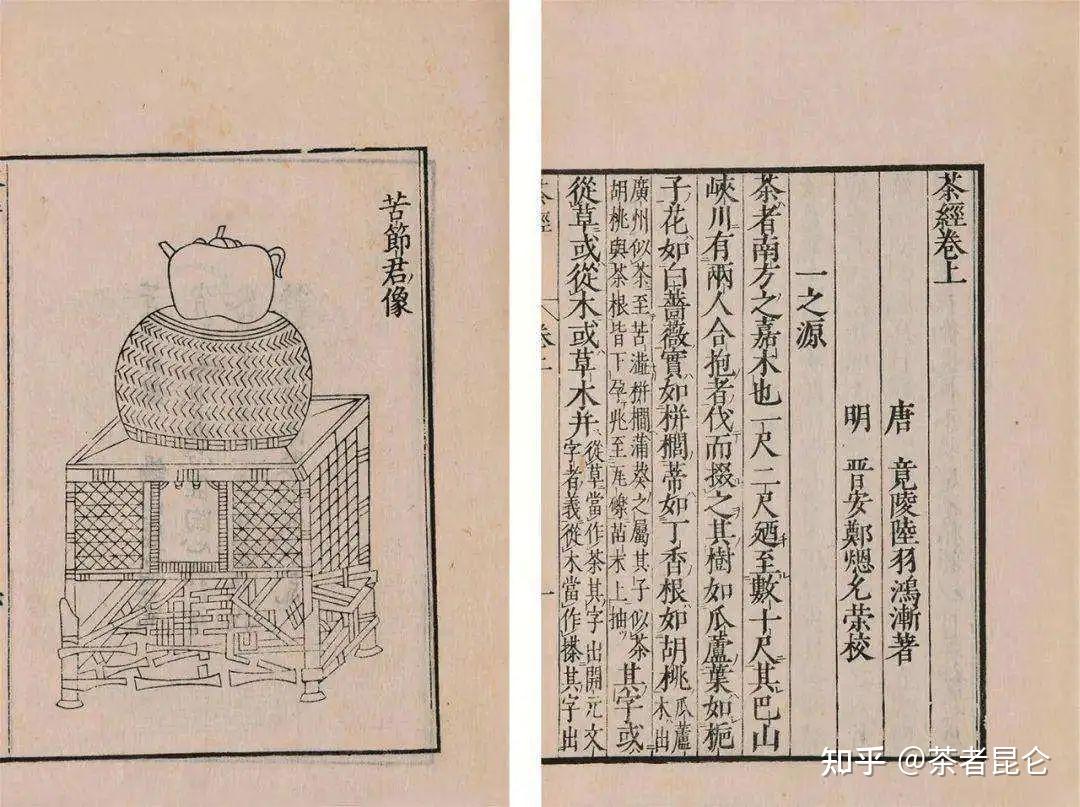 苦節君像
茶經卷上
唐 竟陵陸羽鴻漸著
明 晋安鄭熜允榮校
一之源
茶者南方之嘉木也一尺二尺廼至數十尺其巴山
峽川有兩人合抱者伐而掇之其樹如瓜蘆葉如梔
子花如白薔薇實如栟櫚蒂如丁香根如胡桃瓜蘆木出
廣州似茶至苦澁栟櫚蒲葵之屬其子似茶胡桃與茶根皆下孕兆至瓦礫苗木上抽其字或
從草或從木或草木并從草當作茶其字出開元文字者義從木當作搽其字出
茶經
一
知乎 @茶者昆仑